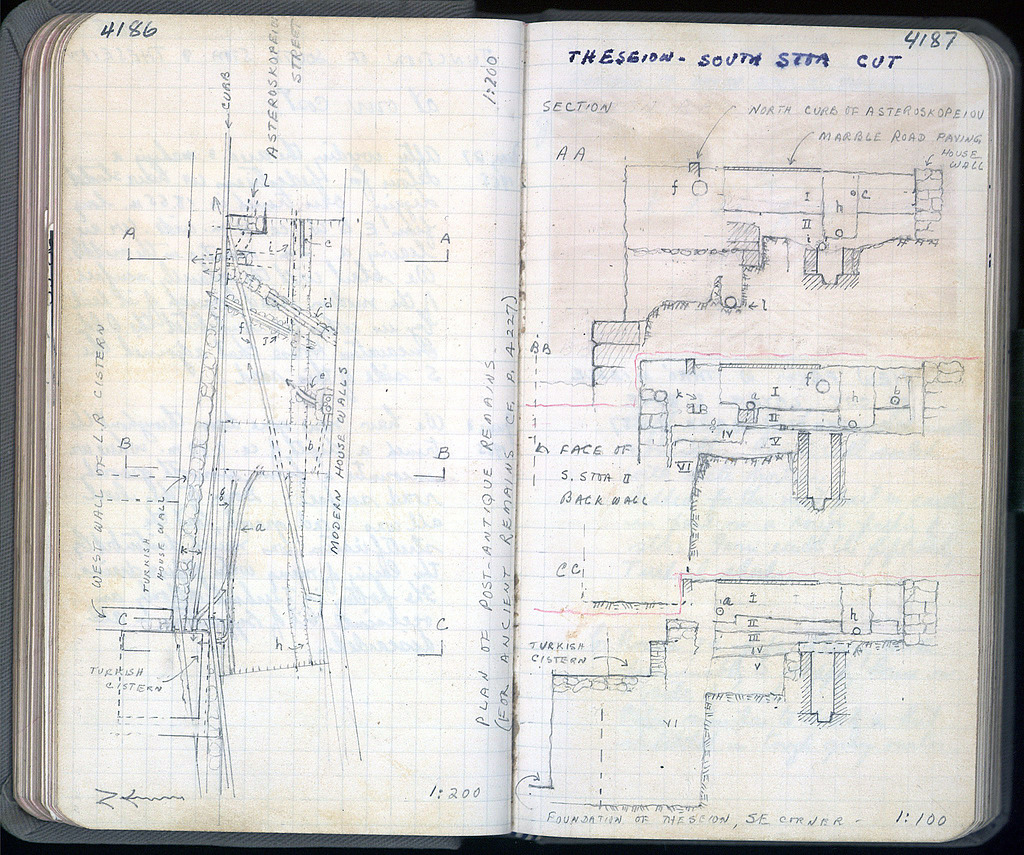 4186
CURB
ASTEROSKOPEIO
STREET
1:200
l
A
A
i
c
d
f
j
e
b
B
B
g
a
h
WEST WALL OF L.R. CISTERN
TURKISH
HOUSE WALL
MODERN HOUSE WALLS
C
C
TURKISH
CISTERN
1:200
PLAN OF POST-ANTIQUE REMAINS
(FOR ANCIENT REMAINS CF. P. 4227)
4187
THESEION - SOUTH STOA CUT
SECTION
NORTH CURB OF ASTEROSKOPEIOU
MARBLE ROAD PAVING
HOUSE
WALL
AA
f
I
c
h
II
l
BB
f
k
a
I
h
b
LB
II
III
IV
V
VI
FACE OF
S. STOA II
BACK WALL
CC
a
I
h
II
III
IV
V
TURKISH
CISTERN
VI
FOUNDATION OF THESEION, SE CORNER -
1:100